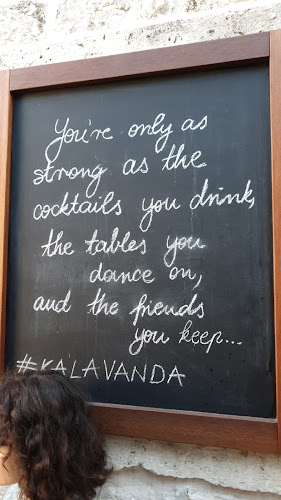 You're only as
strong as the
cocktails you drink,
the tables you
dance on,
and the friends
you keep...
#KALAVANDA